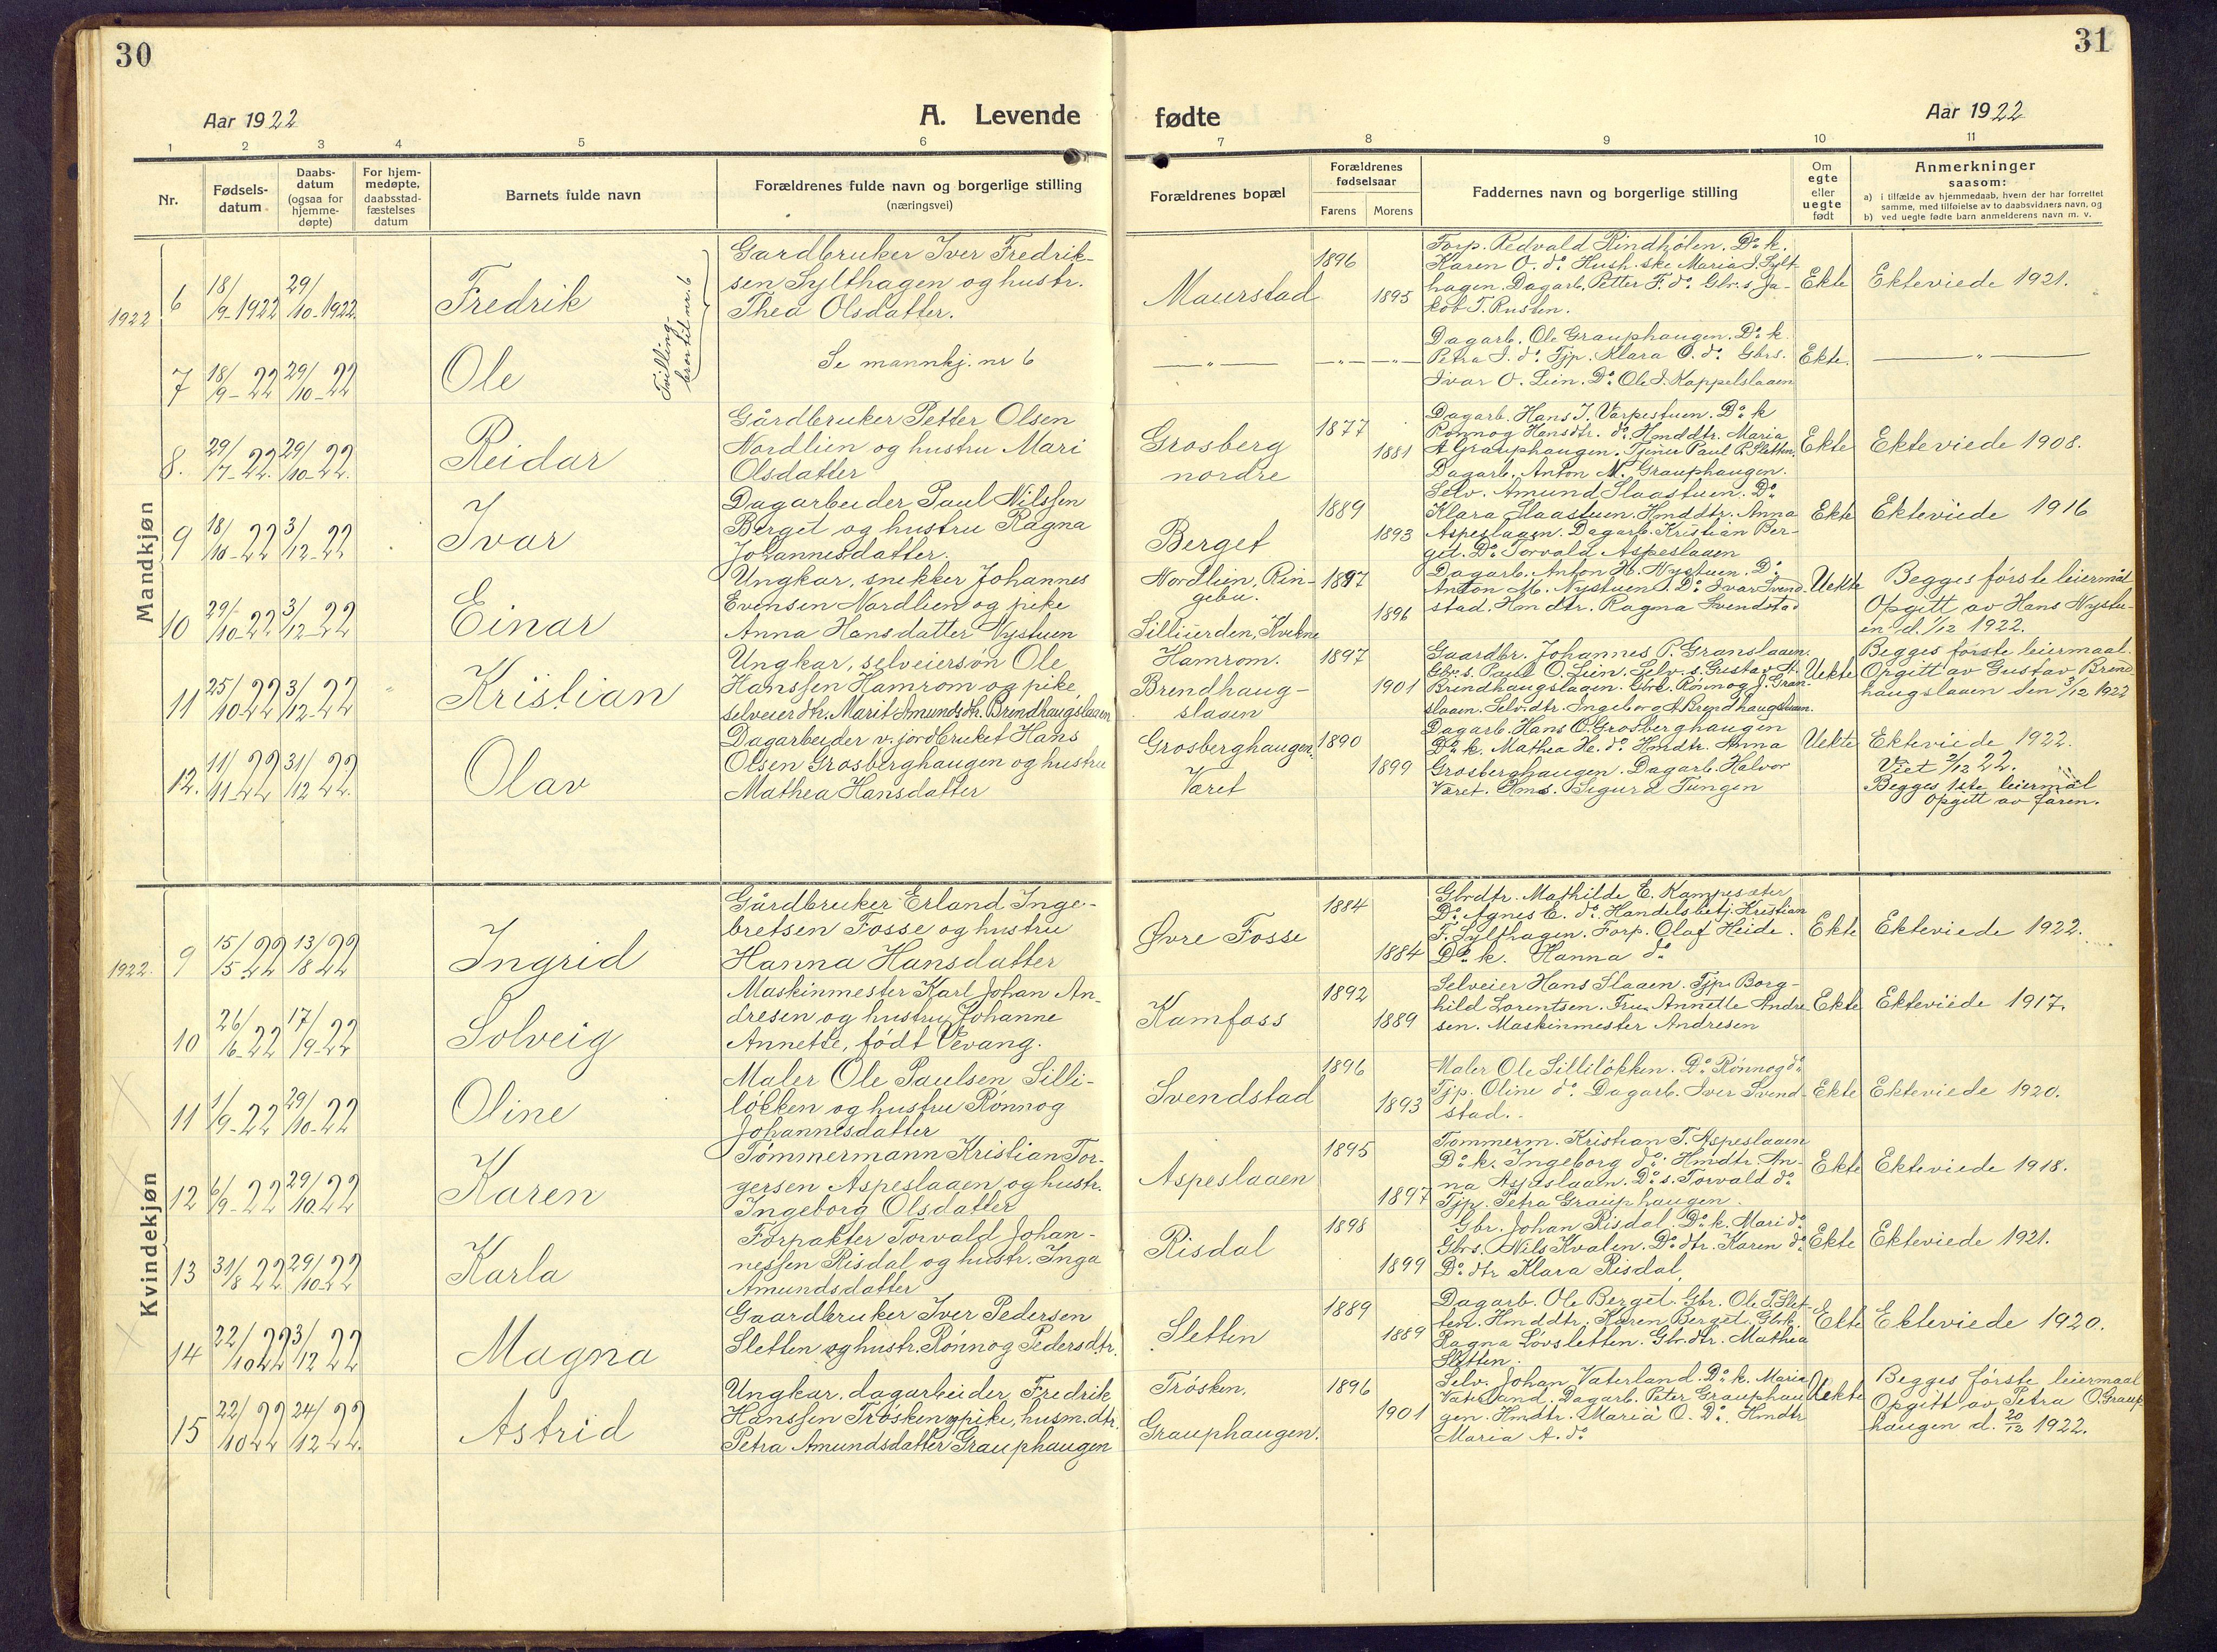 30
31
Aar 1922
A. Levende
fødte
Aar 1922
1 2 3 4 5 6 7 8 9 10 11
Nr.
Fødsels-
datum
Daabs-
datum
(ogsaa for
hjemme-
døpte)
For hjem-
medøpte,
daabsstad-
fæstelses
datum
Barnets fulde navn
Forældrenes fulde navn og borgerlige stilling
(næringsvei)
Forældrenes bopæl
Forældrenes
fødselsaar
Farens Morens
Faddernes navn og borgerlige stilling
Om
egte
eller
uegte
født
Anmerkninger
saasom:
a) i tilfælde av hjemmedaab, hvem der har forrettet
samme, med tilføielse av to daabsvidners navn, og
b) ved uegte fødte barn anmelderens navn m. v.
Mandkjøn
1922
6
18/9-1922
29/10-1922.
Fredrik
Tvilling-
bror til nr. 6
Gardbruker Iver Fredrik-
sen Sylthagen og hustr.
Thea Olsdatter.
Maurstad
1896
1895
Forp. Redvald Rindhølen. Do k.
Karen O. do. Hush.ske Maria I. Sylt-
hagen. Dagarb. Petter F. do. Gbr. s. Ja-
kob T. Rusten.
Ekte
Ekteviede 1921.
7
18/9-22
29/10-22
Ole
Se mannkj. nr 6
— " —
— " — — " —
Dagarb. Ole Grauphaugen. Do k.
Petra I. do. Tjp. Klara O. do. Gbrs.
Ivar O. Lien. Do. Ole I. Kappelslaaen
Ekte.
— " —
8.
29/7-22.
29/10-22.
Reidar
Gårdbruker Petter Olsen
Nordlien og hustru Mari
Olsdatter
Grosberg
nordre
1877
1881
Dagarb. Hans J. Varpestuen. Do k
Rønnog Hansdtr. do. Hmddtr. Maria
A Grauphaugen. Tjener Paul P. Sletten.
Dagarb. Anton M. Grauphaugen.
Ekte
Ekteviede 1908.
9
18/10-22
3/12-22
Ivar
Dagarbeider Paul Nilssen
Berget og hustru Ragna
Johannesdatter.
Berget
1889
1893
Selv. Amund Slaastuen. Do
Klara Slaastuen. Hmddtr. Anna
Aspeslaaen. Dagarb. Kristian Ber-
get. Do. Torvald Aspeslaaen
Ekte
Ekteviede 1916
10
29/10-22
3/12-22
Einar
Ungkar, snekker Johannes
Evensen Nordlien og pike
Anna Hansdatter Nystuen
Nordlien, Rin-
gebu.
Silliuerden, Kvikne
1897
1896
Dagarb. Anton H. Nystuen. Do.
Anton M. Nystuen. Do. Ivar Svend-
stad. Hmdtr. Ragna Svendstad
Uekte
Begges første leiermål
Opgitt av Hans Nystu-
en d. 1/12 1922.
11
25/10-22
3/12-22
Kristian
Ungkar, selveiersøn Ole
Hanssen Hamrom og pike
selveierdtr. Marit Amundsdtr. Brendhaugslaaen
Hamrom.
Brendhaug-
slaaen
1897
1901
Gaardbr. Johannes P. Granslaaen.
Gbr. s. Paul O. Lien. Selv. s. Gustav A.
Brendhaugslaaen. Gbrk. Rønnog J. Gran-
slaaen. Selv.dtr. Ingeborg A Brendhaugslaaen.
Uekte
Begges første leiermaal.
Opgitt av Gustav Brend-
haugslaaen den 3/12 1922
12.
11/11-22
31/12 22.
Olav
Dagarbeider v. jordbruket Hans
Olsen Grosberghaugen og hustru
Mathea Hansdatter
Grosberghaugen.
Været
1890
1899
Dagarb. Hans O. Grosberghaugen
Do k. Mathea H. do. Hmdtr. Anna
Grosberghaugen. Dagarb. Halvor
Været. Sigurd Tungen
Uekte
Ekteviede 1922.
Viet 2/12 22.
Begges 1ste leiermål
Opgitt av faren.
Kvindekjøn
1922.
9
15/5 22
13/8 22
Ingrid
Gårdbruker Erland Inge-
bretsen Fosse og hustru
Hanna Hansdatter
Øvre Fosse
1884
1884
Gbrdtr. Mathilde E. Kampesæter
Do. Agnes E. do. Handelsbetj. Kristian
F. Sylthagen. Forp. Olaf Heide.
Do k. Hanna do
Ekte
Ekteviede 1922.
10
26/6-22
17/9-22
Solveig
Maskinmester Karl Johan An-
dresen og hustru Johanne
Annette, født Vevang.
Kamfoss
1892
1889
Selveier Hans Slaaen. Tjp. Borg-
hild Lorentsen. Fru Annette Andre-
sen. Maskinmester Andresen
Ekte
Ekteviede 1917.
11
1/9-22
29/10-22
Oline
Maler Ole Paulsen Silli-
løkken og hustru Rønnog
Johannesdatter
Svendstad
1896
1893
Maler Ole Silliløkken. Do. Rønnog do
Tjp. Oline do. Dagarb. Iver Svend-
stad.
Ekte
Ekteviede 1920.
12
6/9-22
29/10.22
Karen
Tømmermann Kristian Tor-
gersen Aspeslaaen og hustr.
Ingeborg Olsdatter
Aspeslaaen
1895
1897
Tømmerm. Kristian T. Aspeslaaen
Do k. Ingeborg do. Hmdtr. An-
na Aspeslaaen. Do. s. Torvald do
Tjp. Petra Grauphaugen.
Ekte
Ekteviede 1918.
13
31/8 22
29/10-22
Karla
Forpakter Torvald Johan-
nessen Risdal og hustr. Inga
Amundsdatter
Risdal
1898
1899
Gbr. Johan Risdal. Do k. Mari do
Gbrs. Nils Kvalen. Do. dtr. Karen do.
Do. dtr Klara Risdal.
Ekte
Ekteviede 1921.
14
22/10 22
3/12 22
Magna
Gaardbruker Iver Pedersen
Sletten og hustr. Rønnog Pedersdtr.
Sletten
1889
1889
Dagarb. Ole Berget. Gbr. Ole T. Slet-
ten. Hmddtr. Karen Berget. Gbrk.
Ragna Løvsletten. Gbr.dtr. Mathea
Sletten.
Ekte
Ekteviede 1920.
15
22/10 22
24/12 22.
Astrid
Ungkar, dagarbeider Fredrik
Hanssen Trøsken og pike, husm.dtr.
Petra Amundsdatter Grauphaugen
Trøsken.
Grauphaugen.
1896
1901
Selv. Johan Vaterland. Do. k. Maria
Vaterland. Dagarb. Peter Grauphau-
gen. Hmdtr. Maria O. Do. Hmdtr
Maria A. do
Uekte
Begges første leiermaal
Opgitt av Petra O. Graup-
haugen d. 20/12 1922.